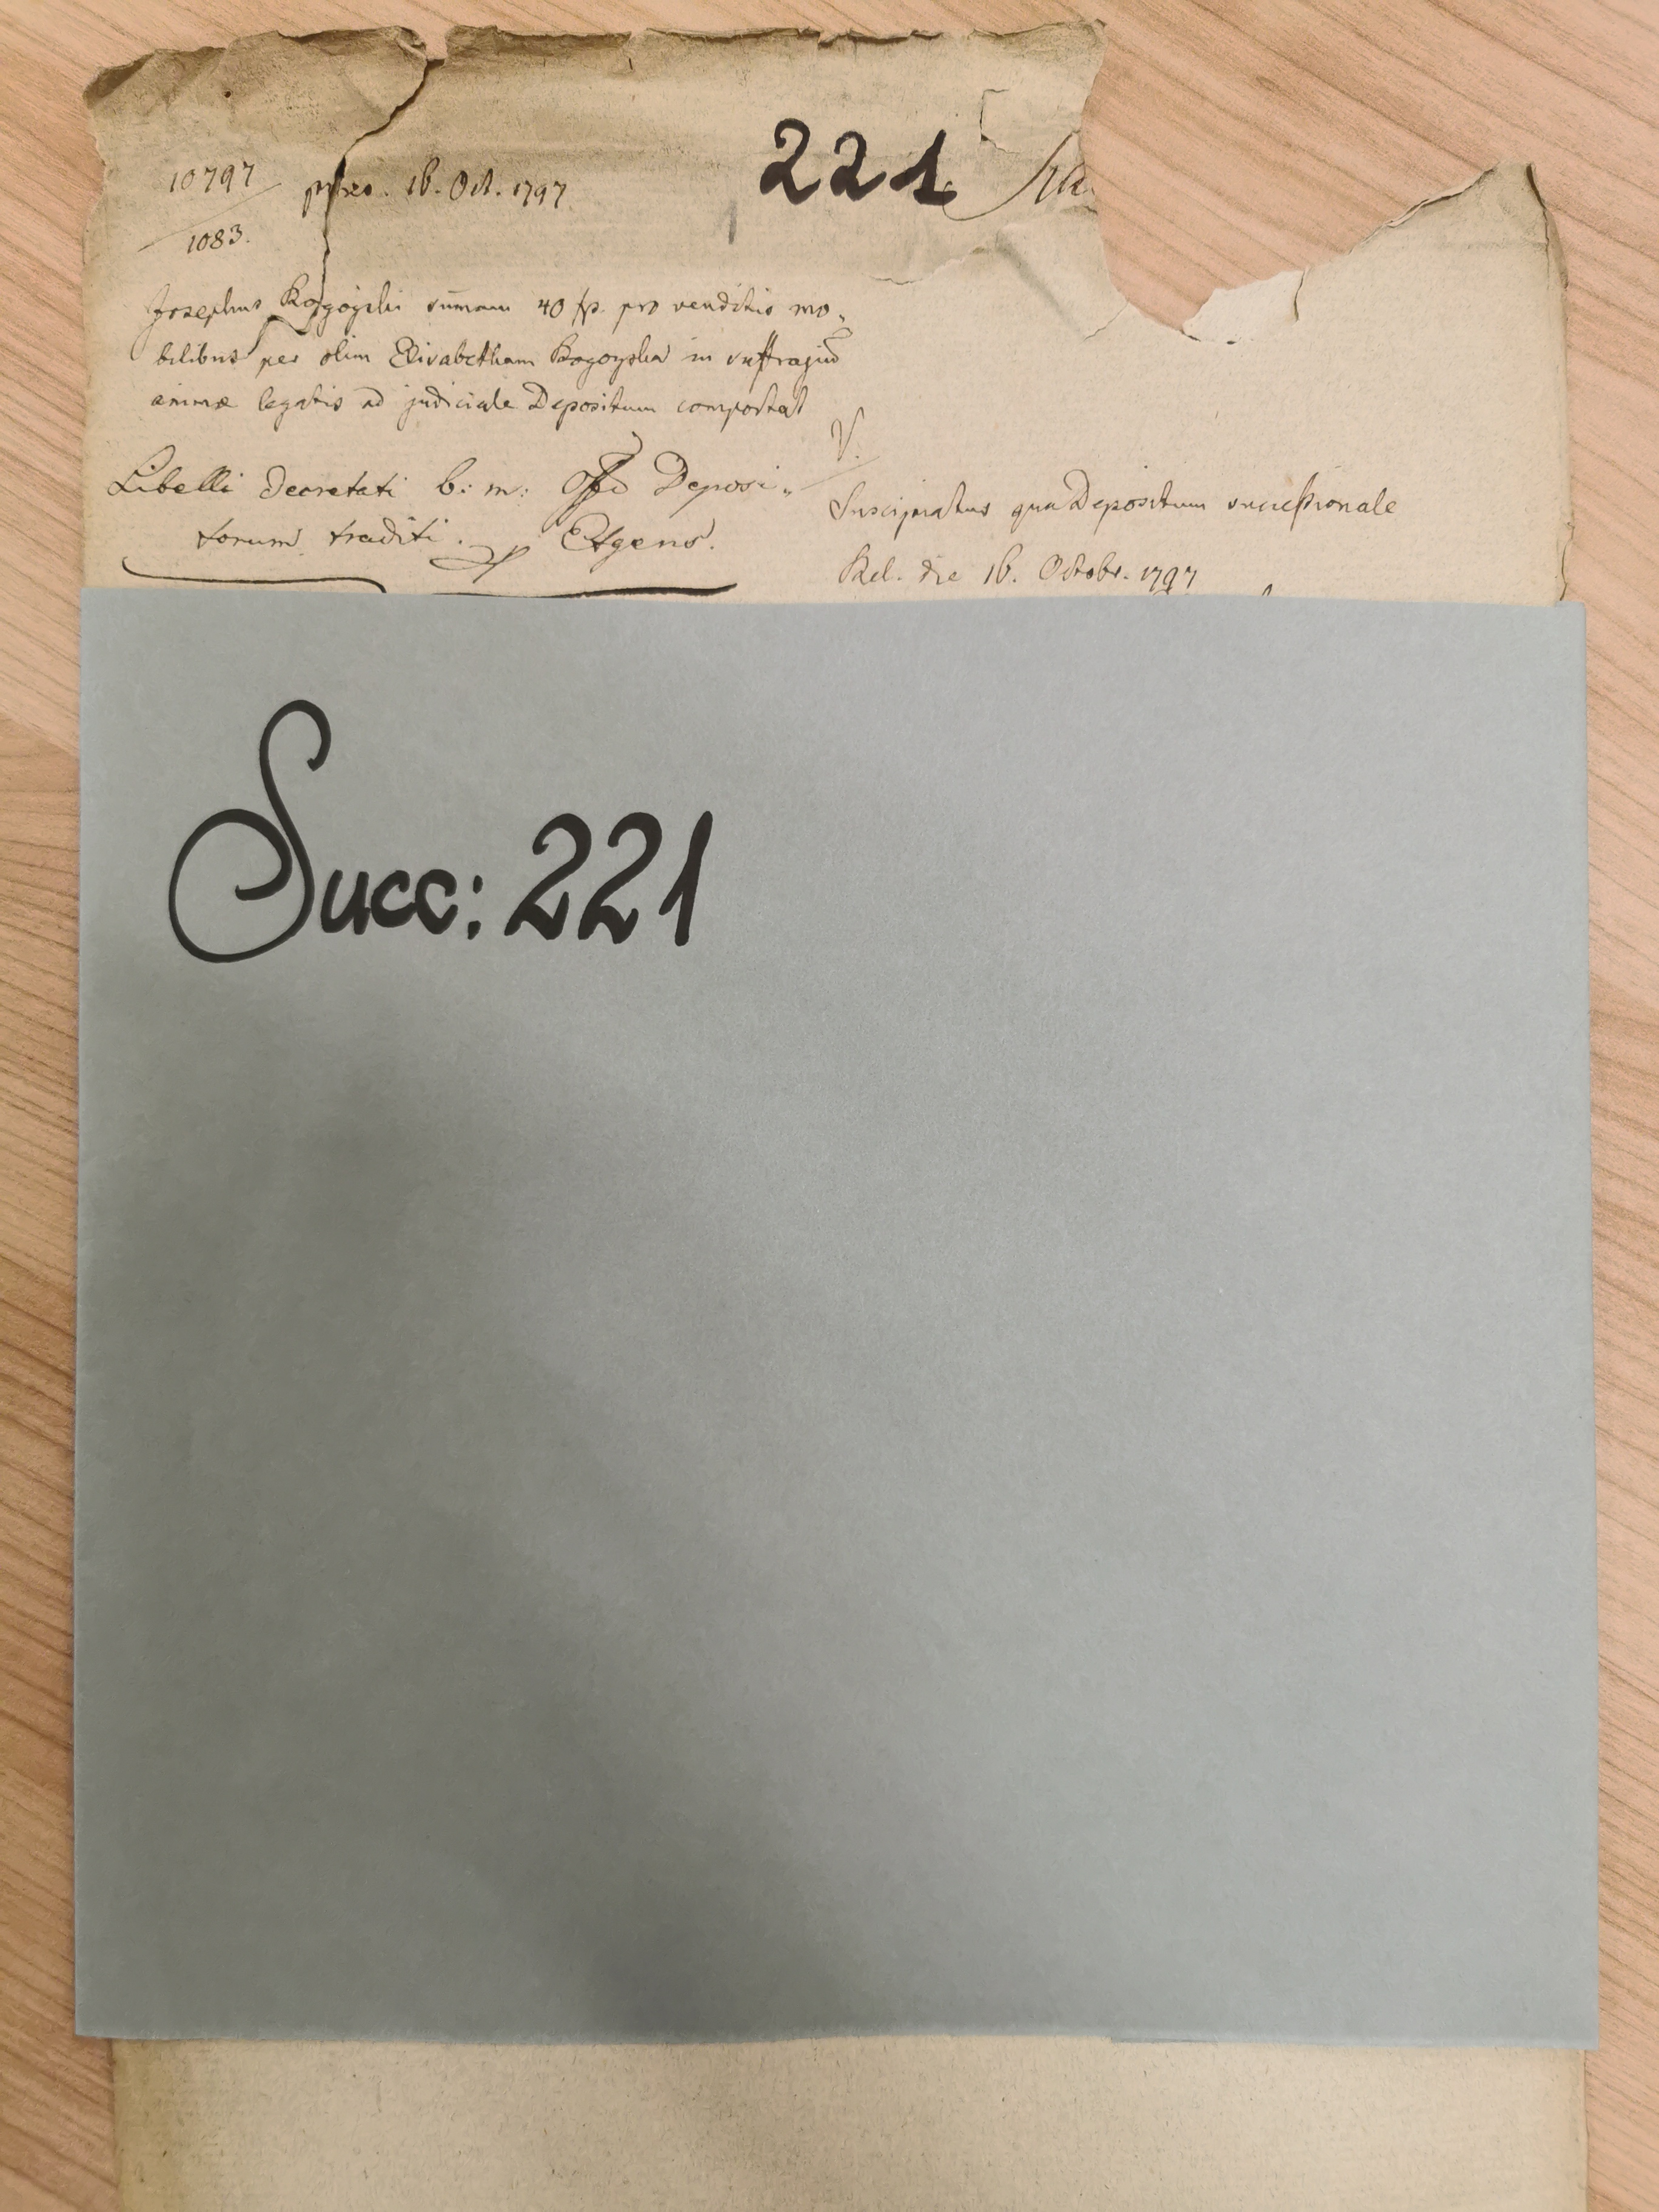 10797
1083.
præs. 16. Oct. 1797
221
Josephus Rogoyski sum̄am 40 fp. pro venditis mo„
bilibus per olim Elisabetham Rogoyska in suffragiū
animæ legatis ad judiciale Depositum comportat
Libelli decretati b: m: Offo Deposi„
torum traditi.
V.
Suscipiatur qua Depositum successionale
Rel. die 16. Octobr. 1797
Succ: 221